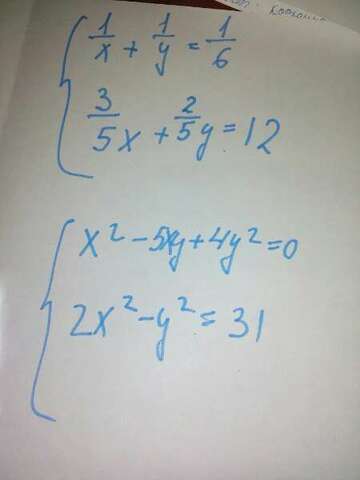 1/x + 1/y = 1/6
3/5 x + 2/5 y = 12
x² - 5xy + 4y² = 0
2x² - y² = 31